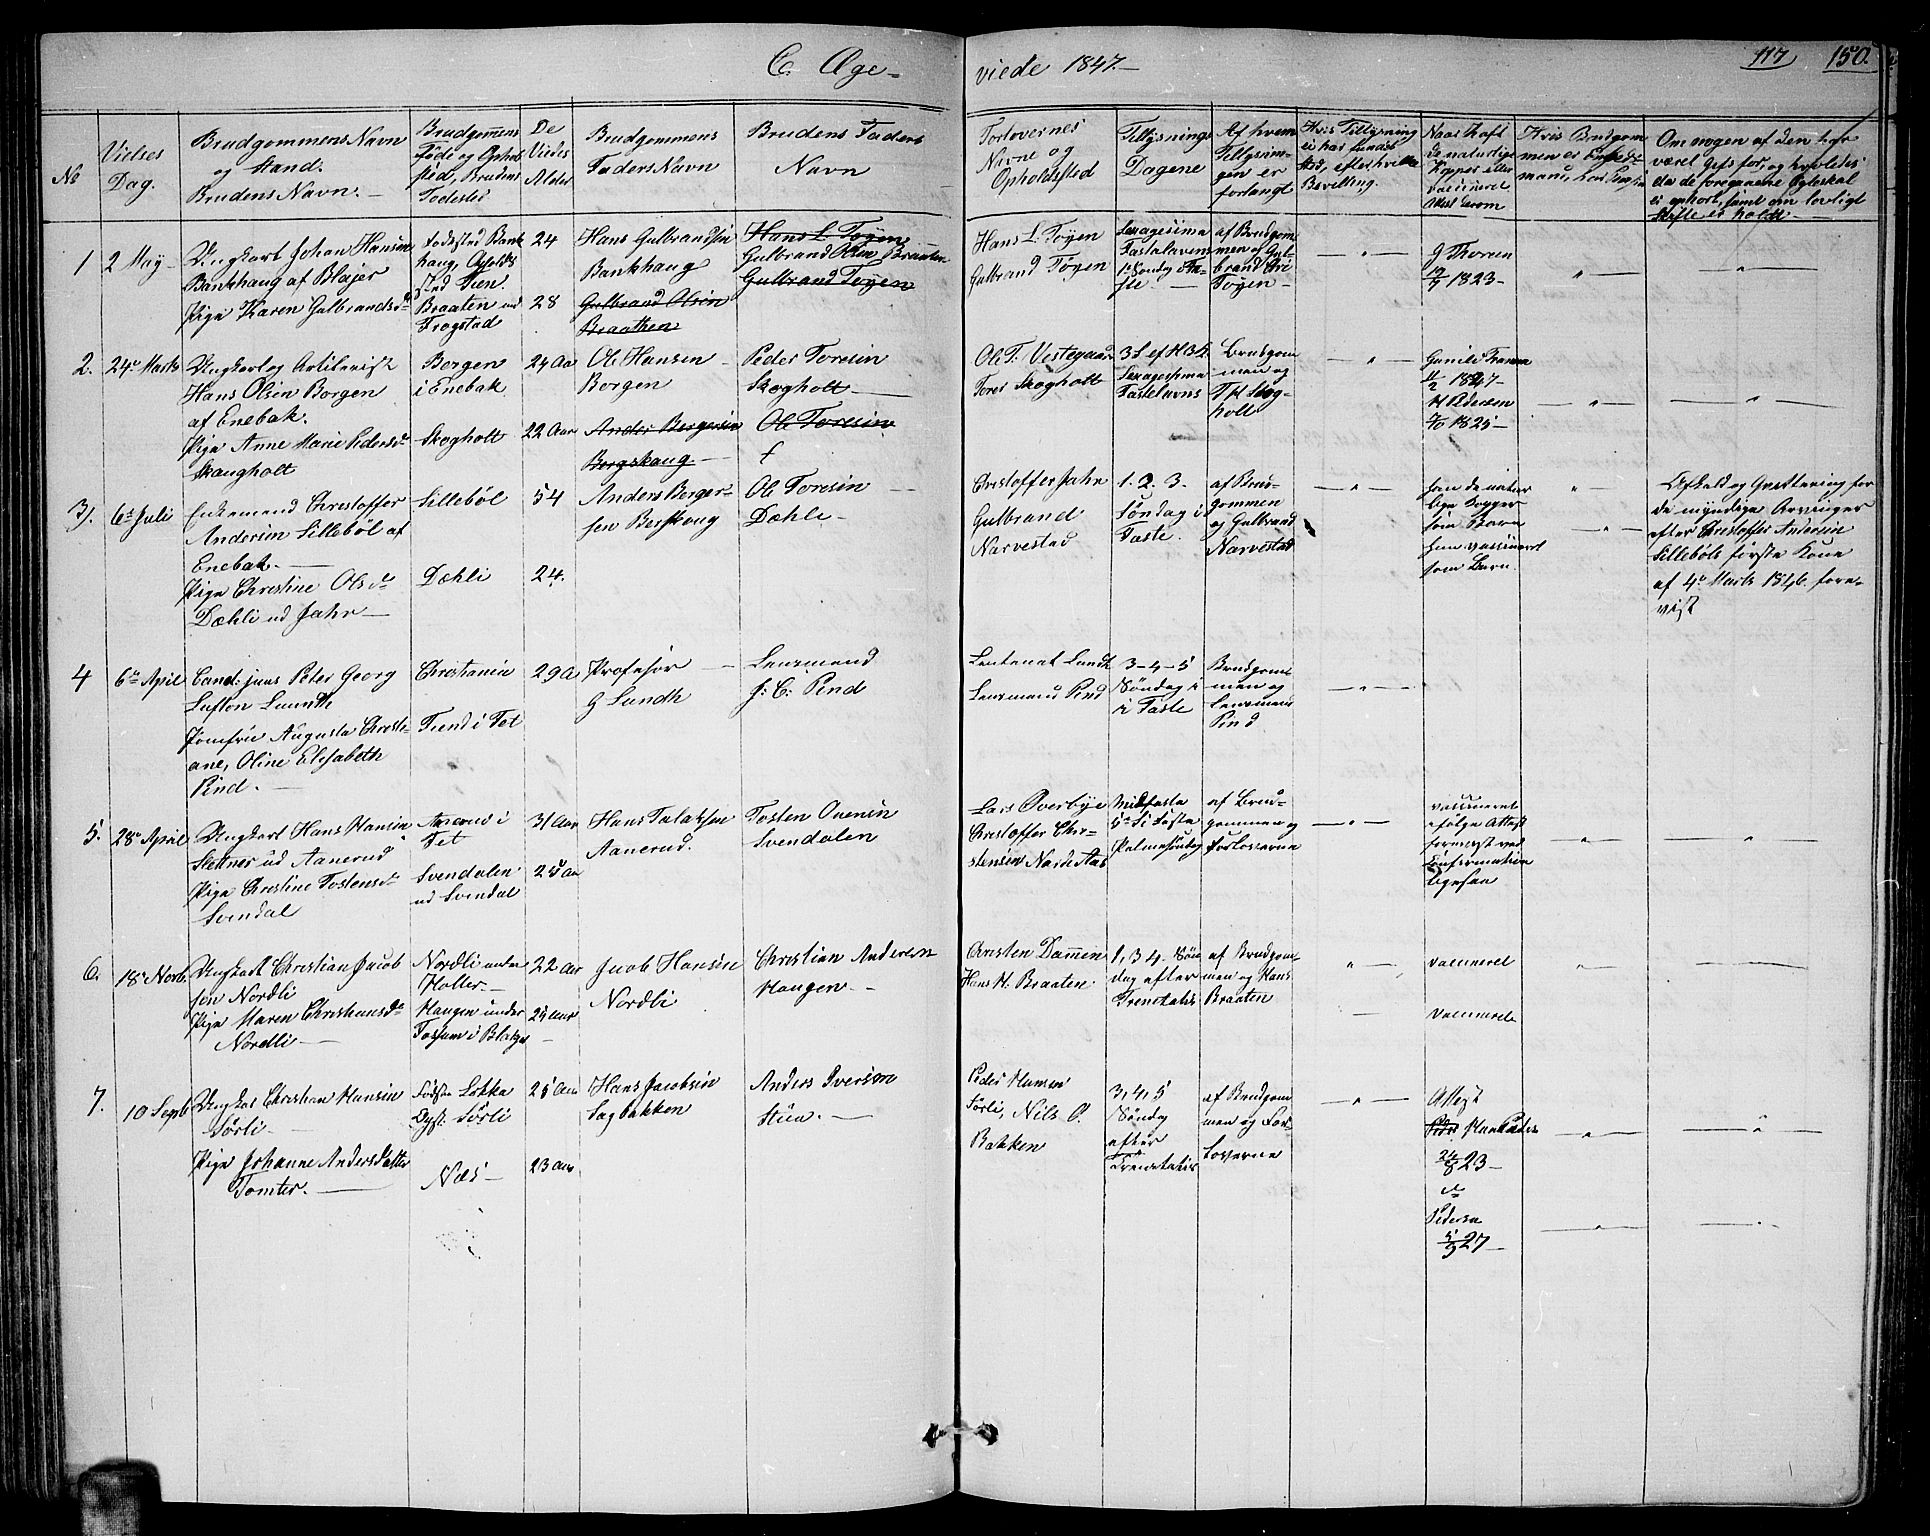 C. Ægte-
viede 1847.
117 150.
No
Vielses
Dag.
Brudgommens Navn
og Stand.
Brudens Navn.
Brudgomens
Føde og Opholds
sted, Brudens
Fødested
De
Viedes
Alder
Brudgommens
Faders Navn
Brudens Faders
Navn
Forlovernes
Navne og
Opholdsted
Tillysnings
Dagene
Af hvem
Tillysnin-
gen er
forlangt
Bevilling.
Om nogen af dem har
været gift før, og hvorledes
1
2 May
Ungkarl Johan Hansen
Bankhaug af Blakjer
Pige Karen Gulbrandsd
Fødested Bank
haug, Opholds
sted
Braaten ved
Frogstad
24
28
Hans Gulbrandsen
Bankhaug
Gulbrand Olsen
Braathen
Hans L. Toyen
Gulbrand Olsen Braaten
Gulbrand Toyen
Hans L. Toyen
Gulbrand Toyen
Sexagesima
Fastelavens
1ste Søndag i Fa-
ste
af Brudgom
men og Gul-
brand
Toyen
J Thoresen
19/9 1823
2.
24de Marts
Ungkarl og Artilerist
Hans Olsen Borgen
af Enebak.
Pige Anne Marie Pedersd
Skaugholt
Borgen
i Enebak
Skogholt
24 Aar
22 Aar
Ole Hansen
Borgen
Anders Bergersen
Bergskaug.
Peder Toresen
Skogholt
Ole Toresen
Ole T. Vestegaard
Tores Skogholt
3 S. ef H 3 K.
Sexagesima
Fastelavns
Brudgom
men og
T H Skog-
holt
11/2 1827
H Pedersen
7/10 1825
3).
6te Juli
Enkemand Christoffer
Andersen Sillebøl af
Enebak.
Pige Christine Olsd
Dæhli ud Jahr
Sillebøl
Dæhli
54
24.
Anders Berger-
sen Berskaug
Ole Toresen
Dæhli
Christoffer Jahr
Gulbrand
Narvestad
1. 2. 3.
Søndag i
Faste.
af Brud
gommen
og Gulbrand
Narvestad
som Barn
som Barn.
de myndige Arvinger
efter Christoffer Andersen
Sillebøls første Kone
af 4de Marts 1846 fore-
vist
4
6te April
Cand: juris Peter Georg
Lufton Lunnth
Jomfrue Augusta Christi-
ane, Oline Elisabeth
Pind.
Christiania
Tiend i Fet
29 A
Profesør
G Lundh
Lensmand
J. C. Pind
Leutenat Lundh
Lensmand Pind
3-4-5
Søndag i
i Faste
Brudgom
men og
Lensmand
Pind
5.
28de April
Ungkarl Hans Hansen
Stettner ud Aanerud
Pige Christine Tostensd
Svendal
Aanerud i
Fet
Svendalen
ud Svendal
31 Aar
25 Aar
Hans Talaksen
Aanerud.
Tosten Evensen
Svendalen
Lars Overbye
Christoffer Chri-
stensen Nordre Aas
Midfaste
5te S i Faste
Palmesundag
af Brud-
gommen og
Forloverne
vaccineret
ifølge Attest
formerkt ved
Confirmation
ligesaa
6.
18de Novb.
Ungkarl Christian Jacob
sen Nordli
Pige Maren Christiansd
Nordli
Nordli under
Holter.
Haugen under
Fossum i Blakjer
22 Aar
24 Aar
Jacob Hansen
Nordli
Christian Andersen
Haugen
Christen Dammen
Hans H. Braaten
1, 3 4. Søn
dag efter
Trenetatis
af Brudgom
men og Hans
Braaten
vaccineret
vaccinerede
7.
10 Septb
Ungkarl Christian Hansen
Sørli
Pige Johanne Andersdatter
Tomter.
Fødsted Løkka
Opst. Sørli
Næs
25 Aar
23 Aar
Hans Jacobsen
Sagbakken
Anders Iversen
Stua.
Peder Hansen
Sørli, Nils O.
Bakken
3, 4, 5
Søndag
efter
Trenetatis
af Brudgom
men og For-
loverne
Attest
24/8 23
Pedersen
5/9 27